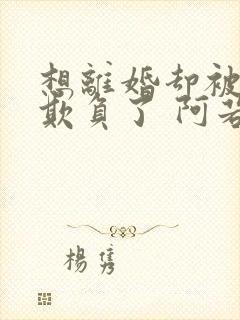 想離婚却被
欺負了 阿若
楊隽